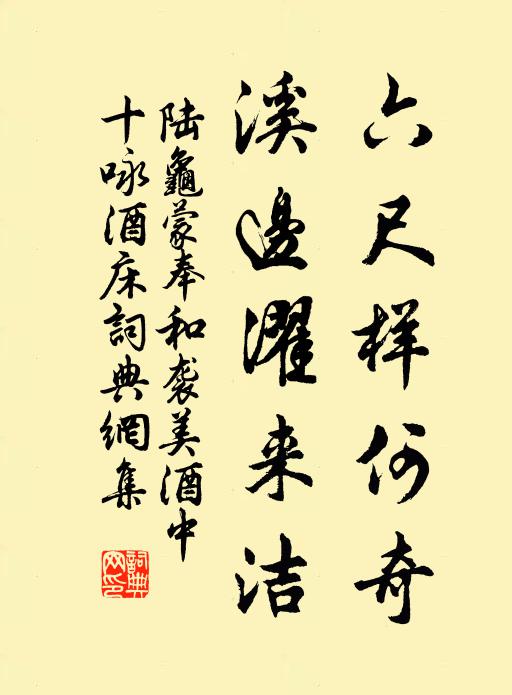 六尺样何奇
溪邊濯来洁
陆龜蒙奉和袭美酒中
十咏酒床詞典網集
詞典网印